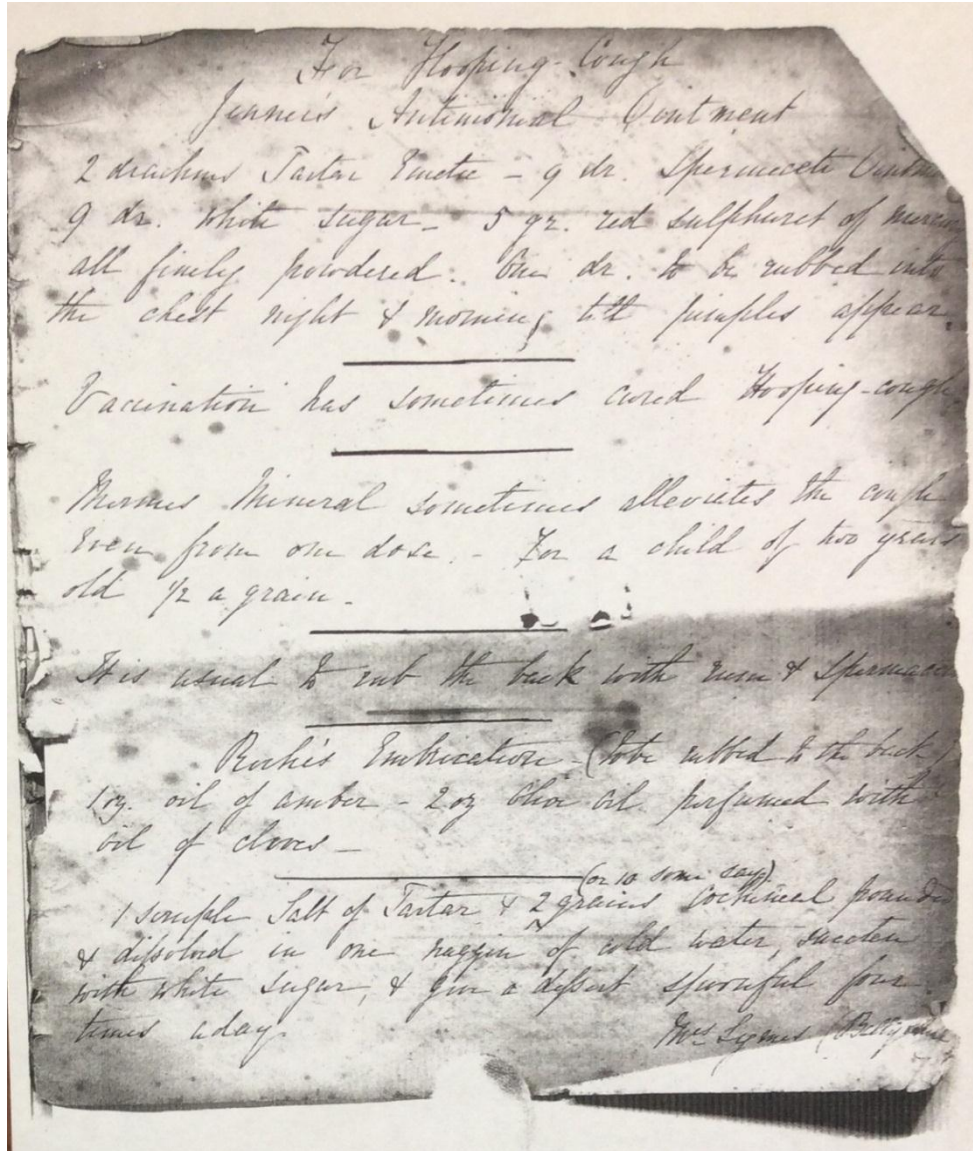 For Hooping-Cough
Jenner's Antimonial Ointment
2 drachms Tartar Emetic – 9 dr. Spermaceti Ointm
9 dr. white sugar – 5 gr. red sulphuret of mercu
all finely powdered. One dr. to be rubbed into
the chest night & morning till pimples appear.
Vaccination has sometimes cured Hooping-cough
Kermes Mineral sometimes alleviates the cough
even from one dose – For a child of two years
old 1/2 a grain –
It is usual to rub the back with rum & Spermace
Roche's Embrocation – (to be rubbed to the back)
1 oz. oil of amber – 2 oz Olive oil perfumed with
oil of cloves –
(or 10 some say)
1 scruple Salt of Tartar & 2 grains Cochineal pound
& dissolved in one naggin of cold water, sweeten
with white sugar, & give a dessert spoonful four
times a day.
Mrs